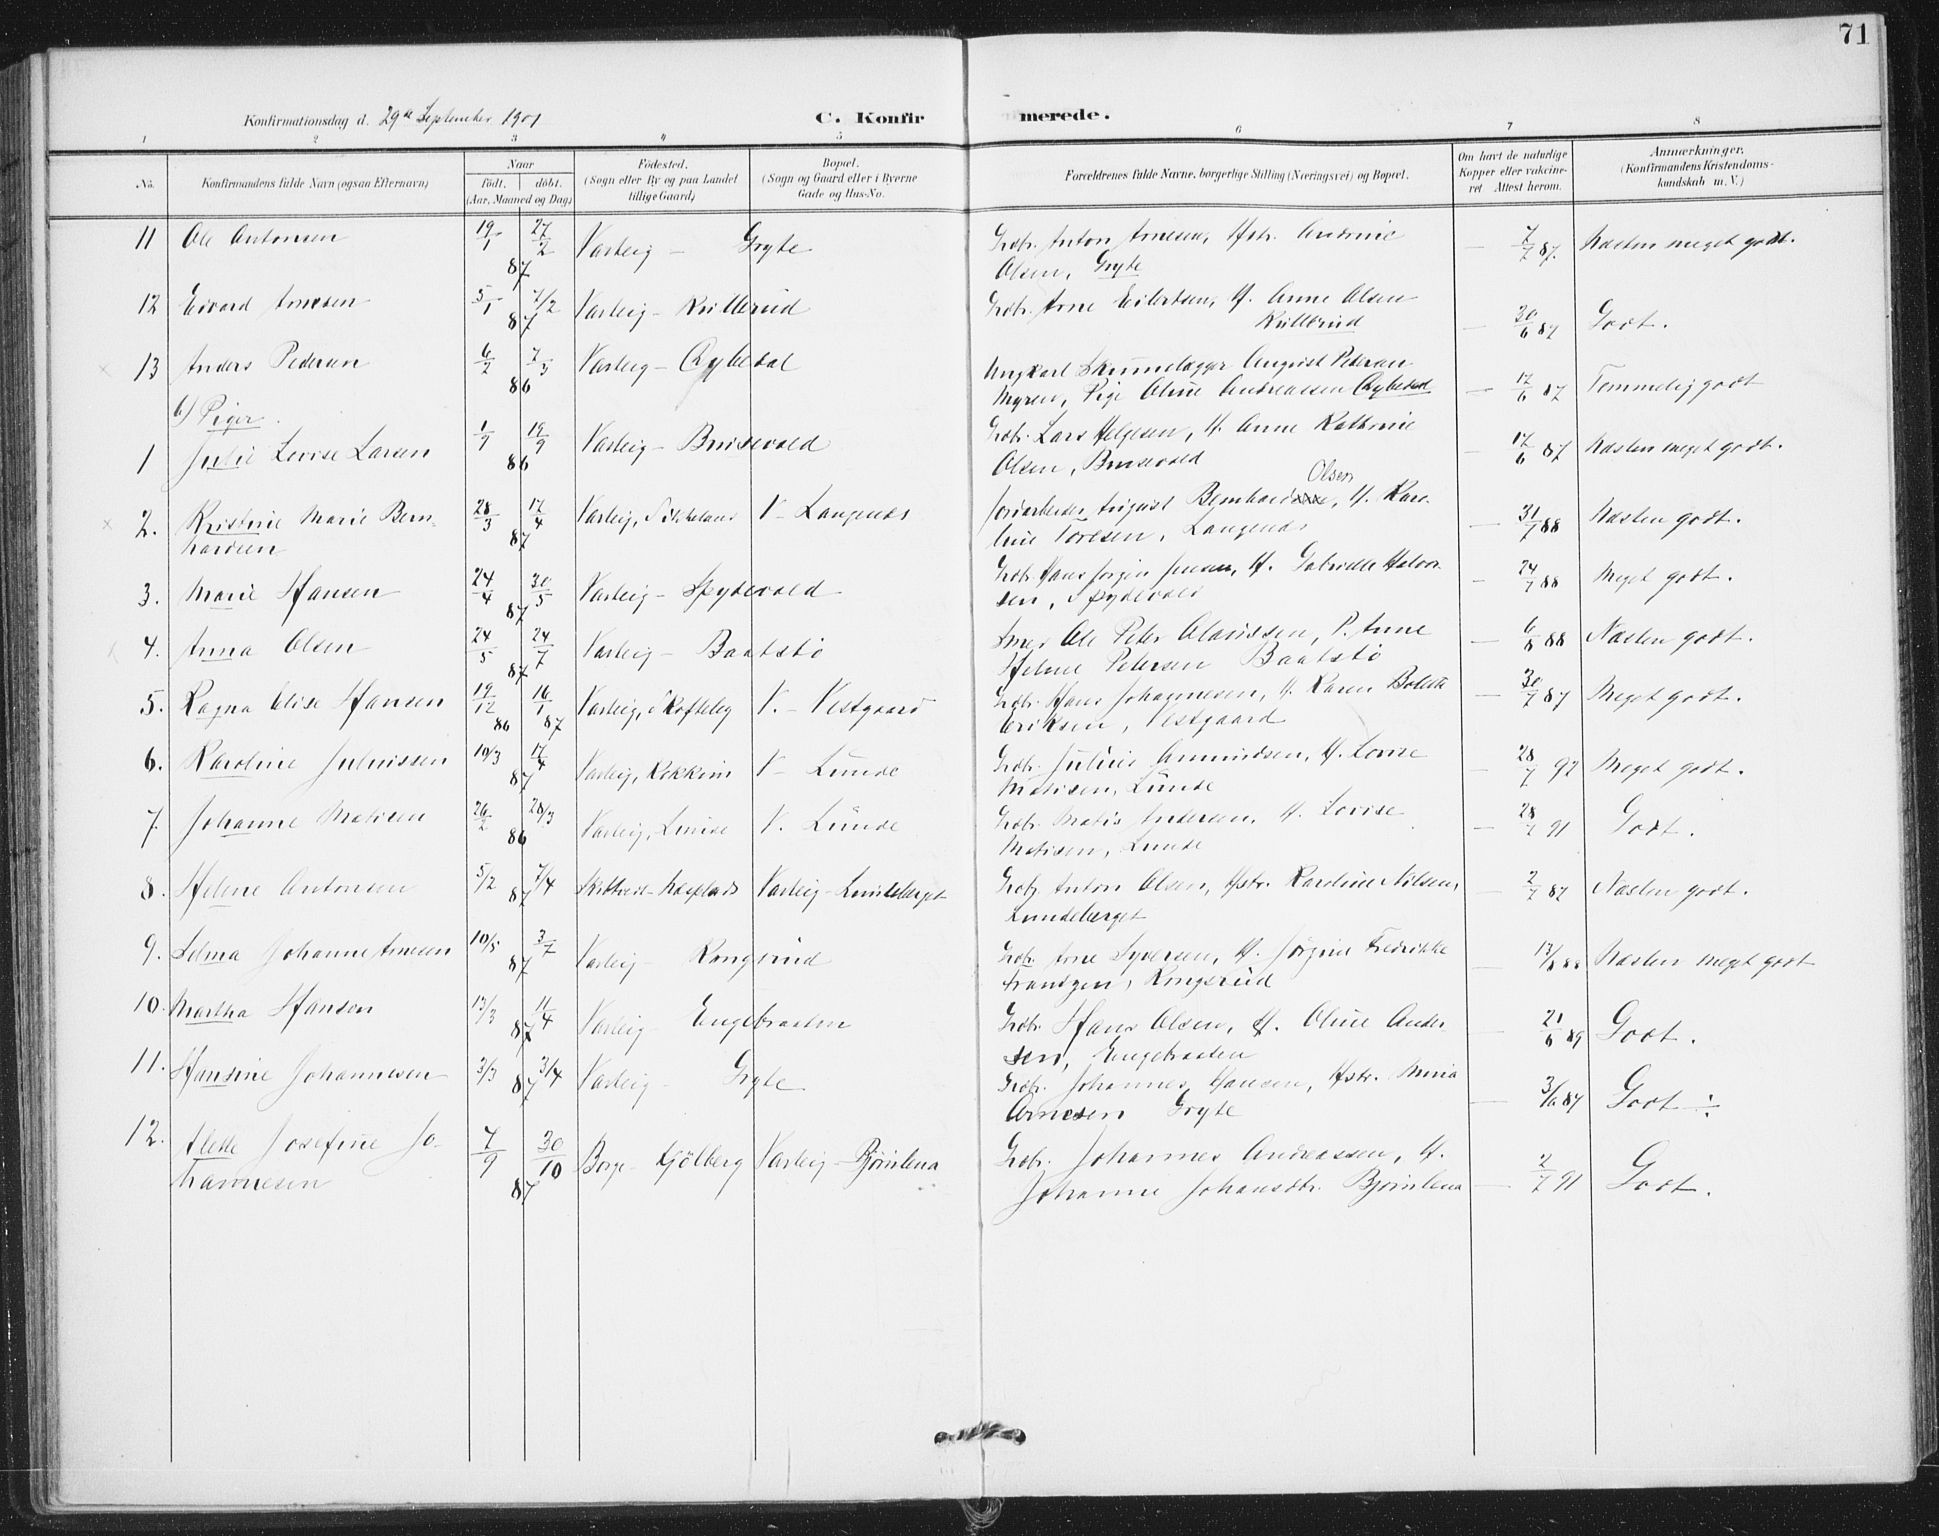 71
Konfirmationsdag d. 29de September 1901
C. Konfirmerede.
1 2 3 4 5 6 7 8
No. Konfirmandens fulde Navn (ogsaa Efternavn)
Naar
födt. döbt.
(Aar, Maaned og Dag)
Födested.
(Sogn eller By og paa Landet
tillige Gaard)
Bopæl.
(Sogn og Gaard eller i Byerne
Gade og Hus-No.
Forældrenes fulde Navne, borgerlige Stilling (Næringsvei) og Bopæl.
Om havt de naturlige
Kopper eller vakcine-
ret Attest herom.
Anmærkninger.
(Konfirmandens Kristendoms-
kundskab m. V.)
11 Ole Antonsen 19/1 27/2 87 Varteig – Gryte Gdbr. Anton Arnesen, Hstr. Andrine — 7/7 87. Næsten meget godt.
Olsen, Gryte
12 Edvard Arnesen 5/1 7/2 87 Varteig – Kullerud Gdbr. Arne Eilertsen, H. Anne Olsen — 30/6 87 Godt.
Kullerud
13 Anders Pedersen 6/2 7/3 86 Varteig – Ungkarl August Pedersen
Myren, Pige Oline Andreassen — 17/6 87 Temmelig godt
b) Piger.
1 Julie Lovise Larsen 1/9 19/9 86 Varteig – Brusevold Gdbr. Lars Helgesen, H. Anne Kathrine — 17/6 87 Næsten meget godt.
Olsen, Brusevold
Olsen
2. Kristine Marie Bern- 28/3 17/4 87 Varteig, V – Langenæs August Bernhard, H. Karo- — 31/7 88 Næsten godt.
hardsen line Toresen, Langenæs
3. Marie Hansen 24/4 30/5 87 Varteig – Spydevold Gdbr. Hans Jørgen Jensen, H. Gabrielle Halvor- – 24/7 88 Meget godt.
sen, Spydevold
4. Anna Olsen 24/5 24/7 87 Varteig – Baatstö Smed Ole Peter Olaussen, P. Anne — 6/8 88 Næsten godt.
Helene Petersen Baatstö
5. Ragna Elise Hansen 19/12 86 16/1 87 Varteig, Skofteby V. – Vestgaard Gdbr. Hans Johannesen, H. Karen Bolette — 30/7 87 Meget godt.
Eriksen, Vestgaard
6. Karoline Juliussen 10/3 17/4 87 Varteig, V – Lunde Gdbr. Julius Amundsen, H. Lovise — 28/7 92 Meget godt.
Matisen, Lunde
7. Johanne Matisen 26/2 28/3 86 Varteig, Lunde V. Lunde Gdbr. Matis Andersen, H. Lovise — 28/7 91 Godt.
Matisen, Lunde
8. Helene Antonsen 5/2 7/4 87 Varteig – Lundeberget Gdbr. Anton Olsen, Hstr. Karoline Nilsen, — 2/7 87 Næsten godt.
Lundeberget
9. Selma Johanne Arnesen 10/5 3/7 87 Varteig – Kongsrud Gdbr. Arne Syversen, H. Jörgine Fredrikke — 13/8 88 Næsten meget godt
Frandsen, Kongsrud
10. Martha Hansen 13/3 11/4 87 Varteig – Engebraaten Gdbr. Hans Olsen, H. Oline Ander- — 21/6 89 Godt.
sen, Engebraaten
11. Hansine Johannesen 3/3 3/4 87 Varteig – Gryte Gdbr. Johannes Hansen, Hstr. Maria — 3/6 87 Godt ÷
Arnesen Gryte
12. Alette Josefine Jo- 7/9 30/10 87 Borge – Kjölberg Varteig – Björnlena Gdbr. Johannes Andreassen, H. — 2/7 91 Godt.
hannesen Johanne Johansdtr. Björnlena